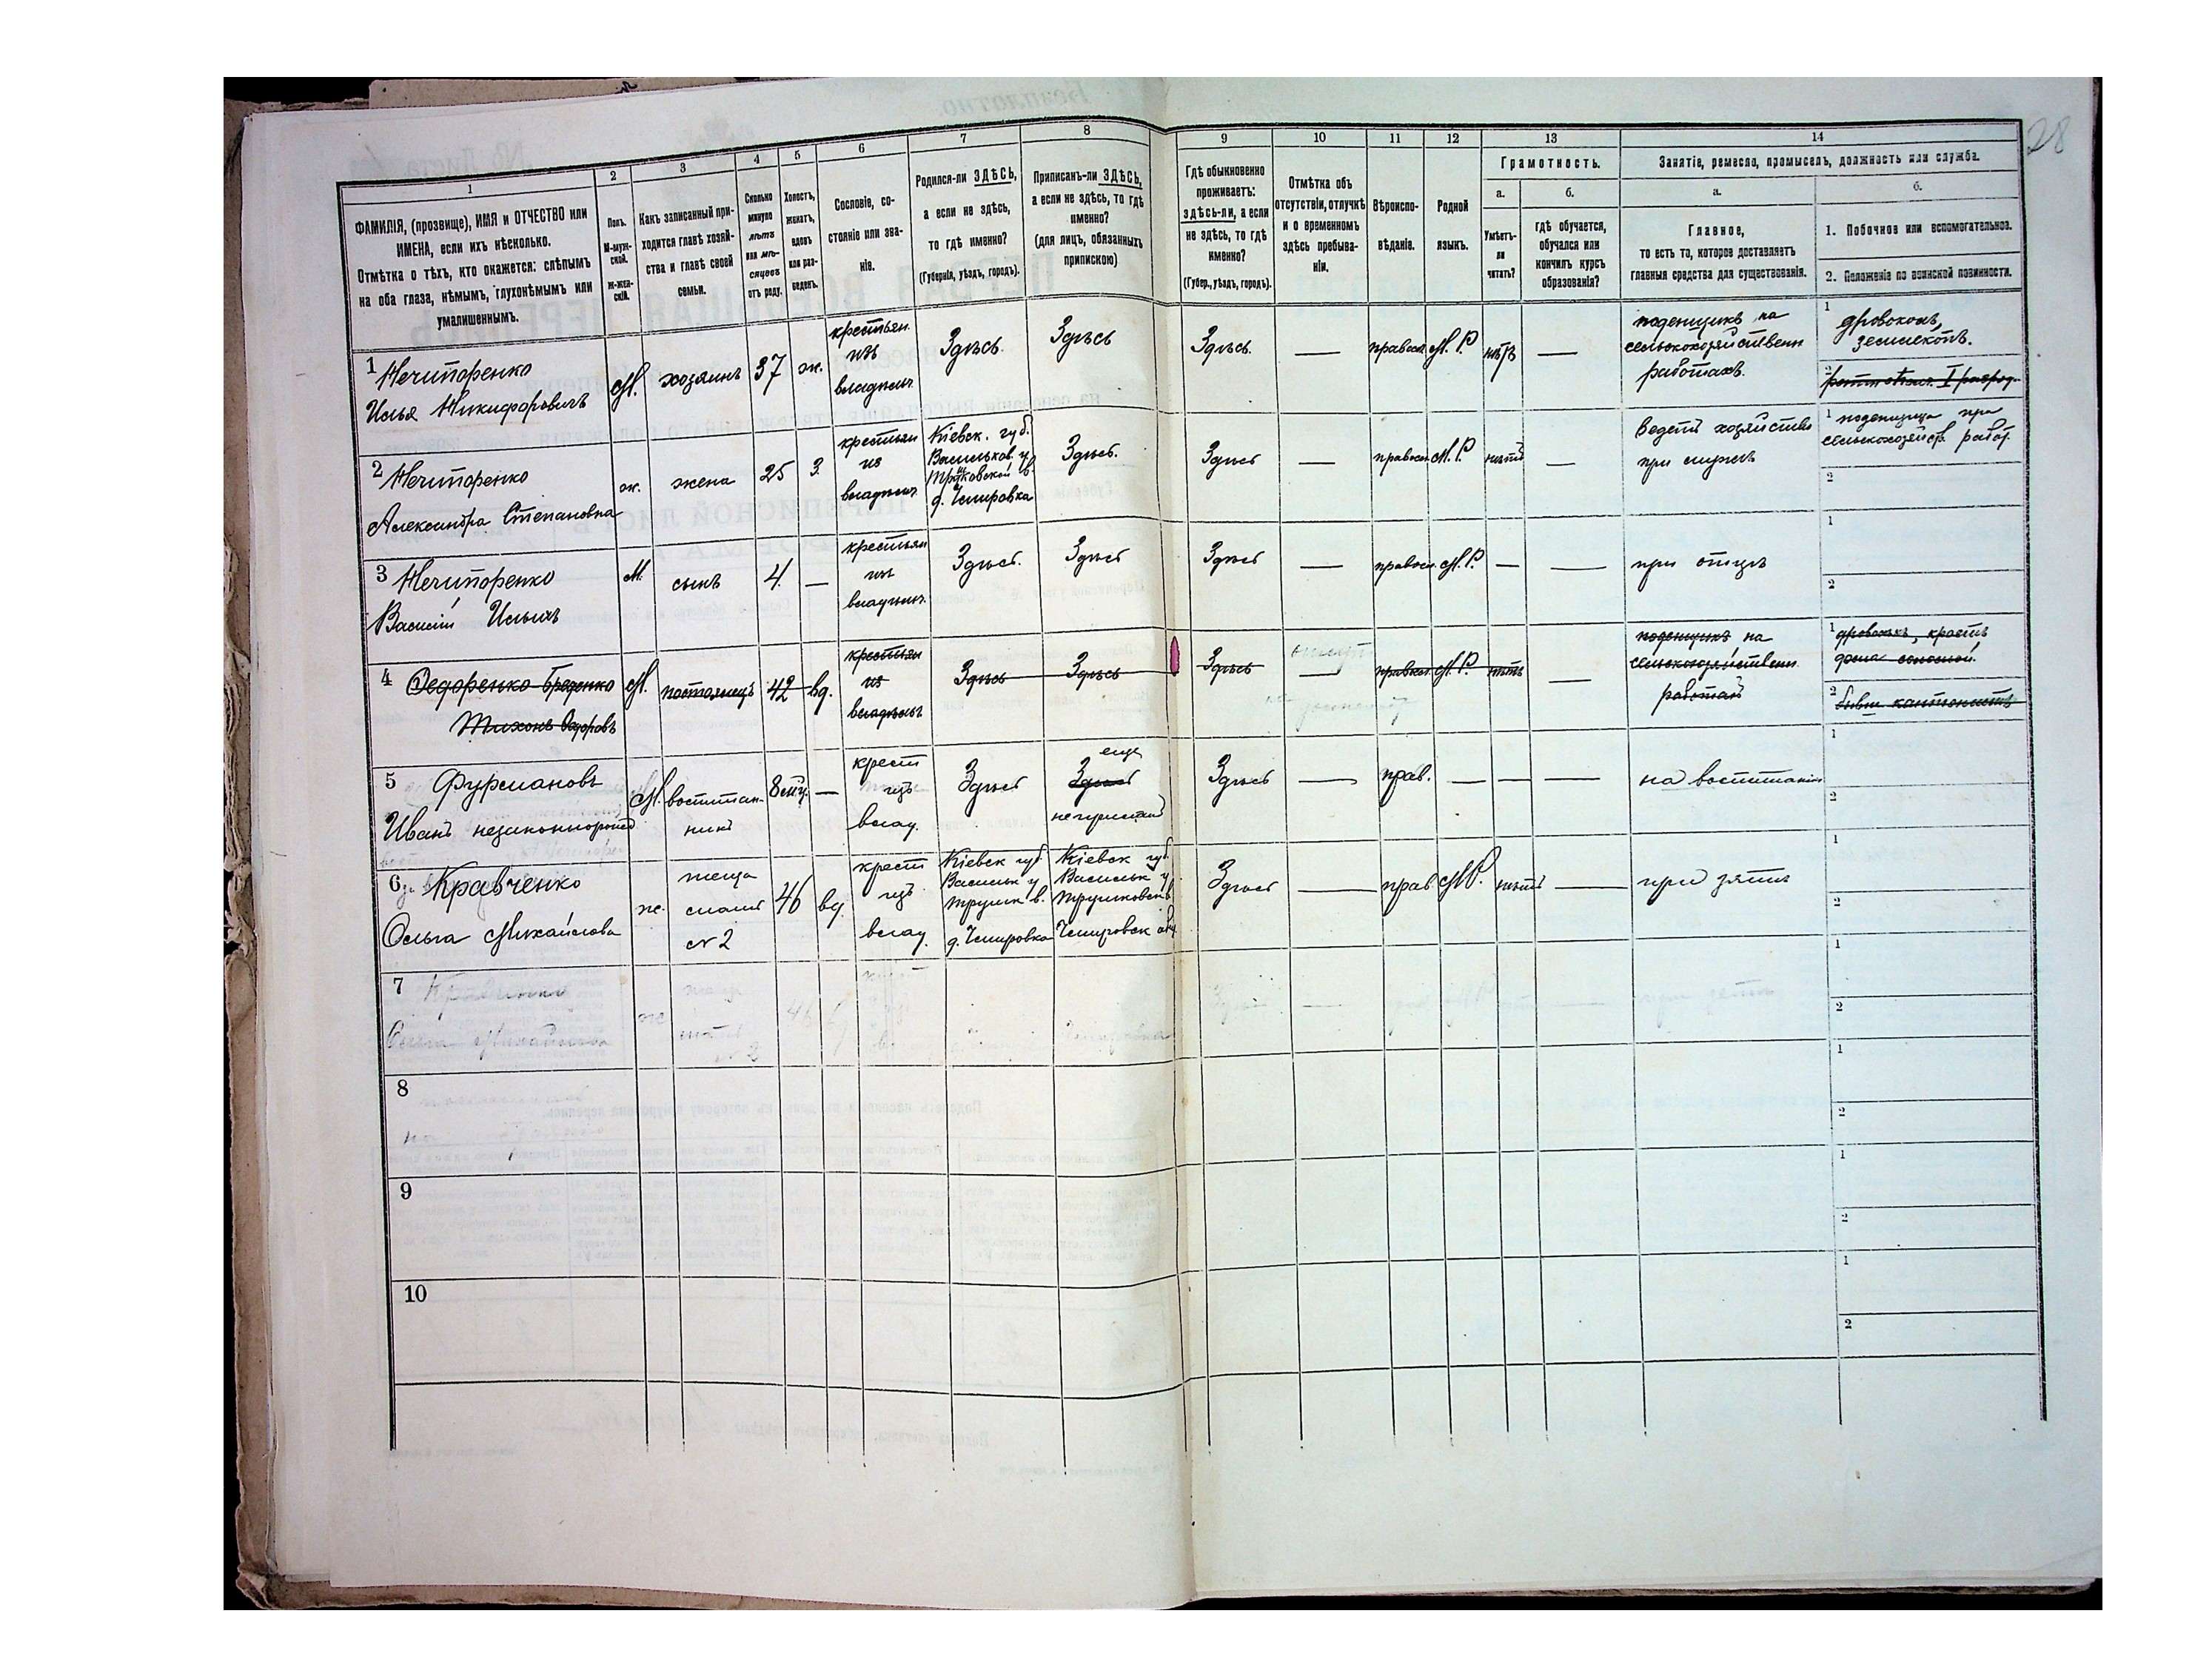 28
1 2 3 4 5 6 7 8 9 10 11 12 13 14
ФАМИЛІЯ, (прозвище), ИМЯ и ОТЧЕСТВО или
ИМЕНА, если ихъ нѣсколько.
Отмѣтка о тѣхъ, кто окажется: слѣпымъ
на оба глаза, нѣмымъ, глухонѣмымъ или
умалишеннымъ.
Полъ.
М-муж-
ской.
Ж-жен-
скій.
Какъ записанный при-
ходится главѣ хозяй-
ства и главѣ своей
семьи.
Сколько
минуло
лѣтъ
или мѣ-
сяцевъ
отъ роду.
Холостъ,
женатъ,
вдовъ
или раз-
веденъ.
Сословіе, со-
стояніе или зва-
ніе.
Родился-ли ЗДѢСЬ,
а если не здѣсь,
то гдѣ именно?
(Губернія, уѣздъ, городъ).
Приписанъ-ли ЗДѢСЬ,
а если не здѣсь, то гдѣ
именно?
(для лицъ, обязанныхъ
припискою)
Гдѣ обыкновенно
проживаетъ:
здѣсь-ли, а если
не здѣсь, то гдѣ
именно?
(Губер., уѣздъ, городъ).
Отмѣтка объ
отсутствіи, отлучкѣ
и о временномъ
здѣсь пребыва-
ніи.
Вѣроиспо-
вѣданіе.
Родной
языкъ.
Грамотность.
а.
Умѣетъ-
ли
читать?
б.
гдѣ обучается,
обучался или
кончилъ курсъ
образованія?
Занятіе, ремесло, промыселъ, должность или служба.
а.
Главное,
то есть то, которое доставляетъ
главныя средства для существованія.
б.
1. Побочное или вспомогательное.
2. Положеніе по воинской повинности.
1 Нечипоренко
Илья Никифоровичъ
М. хозяинъ 37 ж.
крестьян.
изъ
владѣльч.
Здѣсь. Здѣсь Здѣсь. — правосл М. Р. нѣтъ —
поденщикъ на
сельскохозяйственн
работахъ.
1 дровоколъ,
землекопъ.
2
2 Нечипоренко
Александра Степановна
ж. жена 25 З.
крестьян
из
владѣльч.
Кіевск. губ.
Васильков. у
д. Чмировка
Здѣсь. Здѣсь — правосл М. Р. нѣтъ —
ведетъ хозяйство
при мужѣ
1 поденщица при
сельскохозяйств. работ.
2
3 Нечипоренко
Василій Ильичъ
М. сынъ 4. —
крестьян
изъ
владѣльч.
Здѣсь. Здѣсь Здѣсь — правосл. М. Р. — — при отцѣ
1
2
4 Федоренко Бреденко
Тихонъ Федоровъ
М. постоялецъ 42 вд.
крестьян
из
владѣльч
Здѣсь Здѣсь Здѣсь — правосл М. Р. нѣтъ —
поденщикъ на
сельскохозяйственн
работах
1 дровоколъ, кроетъ
дома соломой.
2 бывш. кантонистъ
5 Фурмановъ
Иванъ незаконнорожд
М. воспитан-
никъ
8 —
крест
изъ
влад.
Здѣсь
еще
Здѣсь
не приписан
Здѣсь — прав. — — — на воспитаніи
1
2
6 Кравченко
Ольга Михайлова
ж.
теща
№ 2
46 вд.
крест
изъ
влад.
Кіевск губ.
Васильк у
Трушк в.
д. Чмировка
Кіевск губ.
Васильк у
Трушковск в
Чмировск
Здѣсь — прав М.Р. нѣтъ — при зятѣ
1
2
7 Кравченко
Ольга Михайлова
ж
теща
№ 2
46
Чмировка
Здѣсь — при зятѣ
1
2
8
1
2
9
1
2
10
1
2